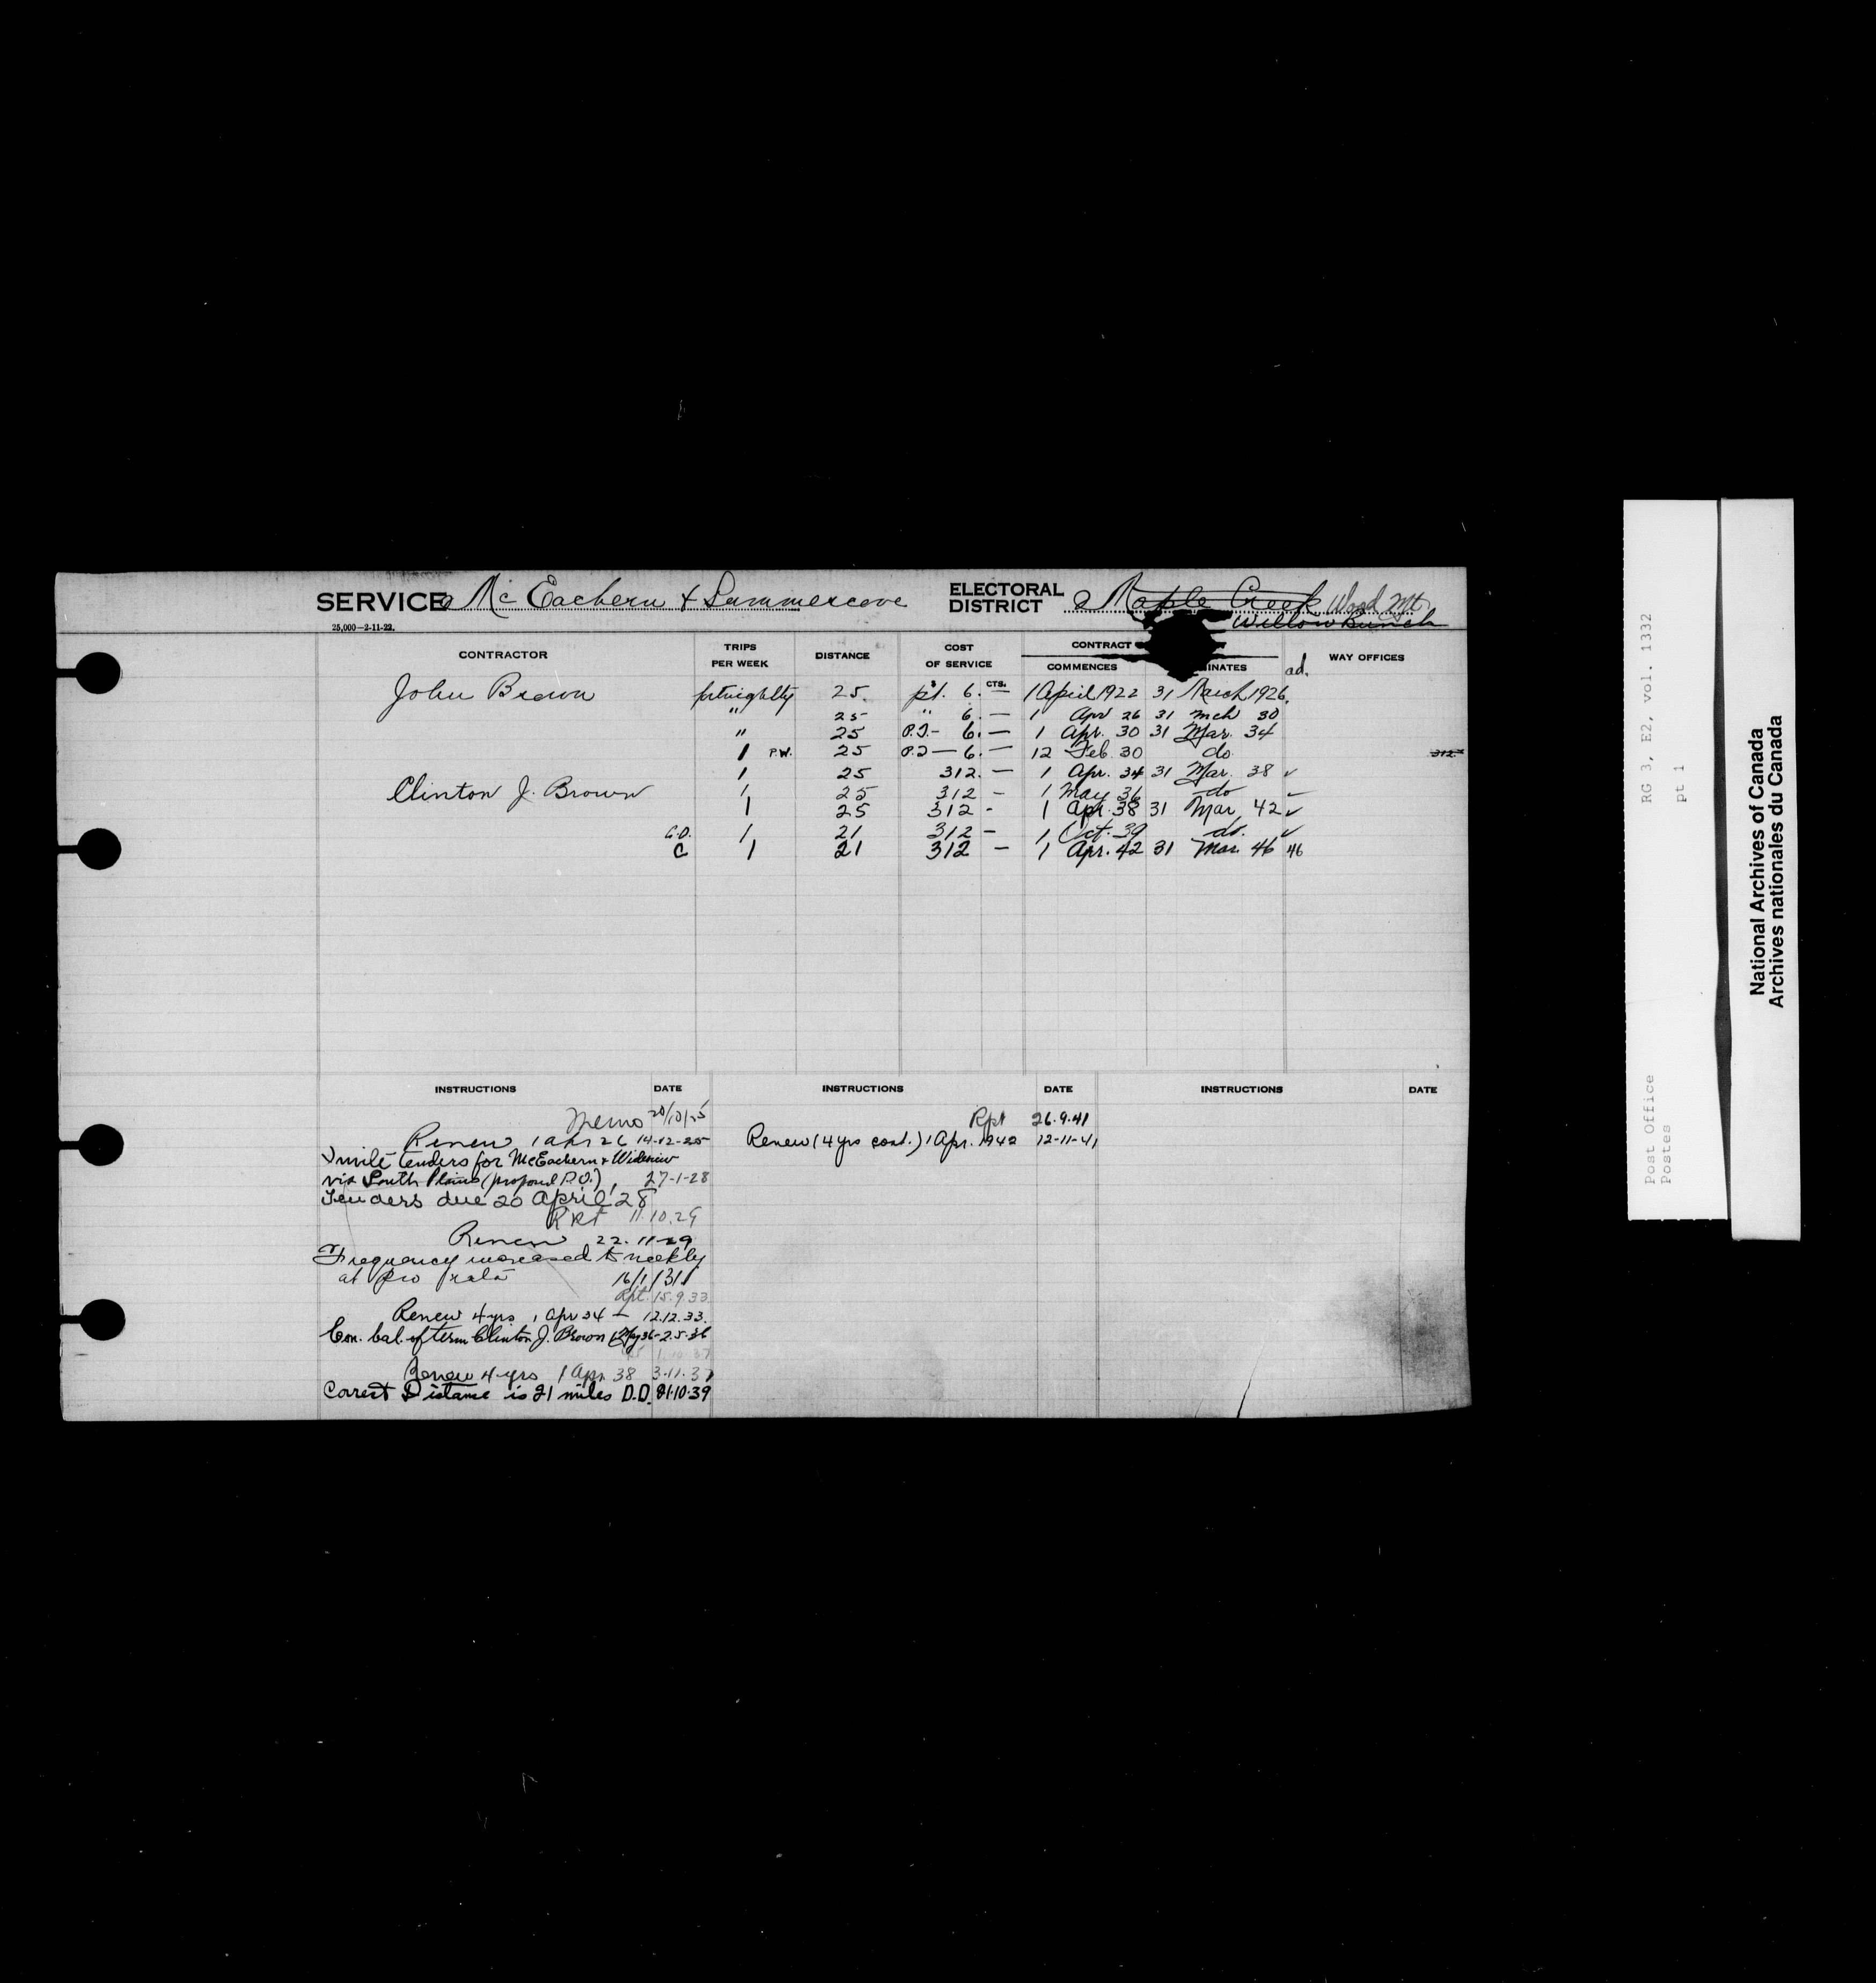 SERVICE Mc Eachern & Summercove ELECTORAL DISTRICT Maple Creek Wood Mt.
Willow Bunch
25,000—2-11-22.
CONTRACTOR TRIPS PER WEEK DISTANCE COST OF SERVICE CONTRACT COMMENCES INATES WAY OFFICES
$ CTS. ad.
John Brown fortnightly 25 pt. 6. — 1 April 1922 31 March 1926.
" 25 " 6. — 1 Apr 26 31 Mch 30
" 25 P.T.- 6. — 1 Apr. 30 31 Mar. 34
1 P.W. 25 P.T — 6. — 12 Feb 30 do 312
1 25 312. — 1 Apr. 34 31 Mar. 38 ✓
Clinton J. Brown 1 25 312 — 1 May 36 do
1 25 312 - 1 Apr. 38 31 Mar. 42 ✓
1 21 312 — 1 Oct. 39 do. ✓
C 1 21 312 — 1 Apr. 42 31 Mar. 46 46
INSTRUCTIONS DATE INSTRUCTIONS DATE INSTRUCTIONS DATE
Memo 20/10/25
Renew 1 Apr 26 14-12-25
Invite tenders for McEachern &
via South Plains (proposed P.O.), 27-1-28
Tenders due 20 April, 28
Rpt 11.10.29
Renew 22.11-29
Frequency increased to weekly
at pro rata 16/1/31
Rpt. 15.9.33
Renew 4 yrs 1 Apr 34 — 12.12.33.
Con. bal. of term Clinton J. Brown 1 May 36-2.5.36
Renew 4 yrs 1 Apr. 38 3.11.37
Correct Distance is 21 miles D.D. 21.10.39
Rpt 26.9.41
Renew (4 yrs cont.) 1 Apr. 1942 12-11-41
RG 3, E2, vol. 1332
pt 1
Post Office
Postes
National Archives of Canada
Archives nationales du Canada